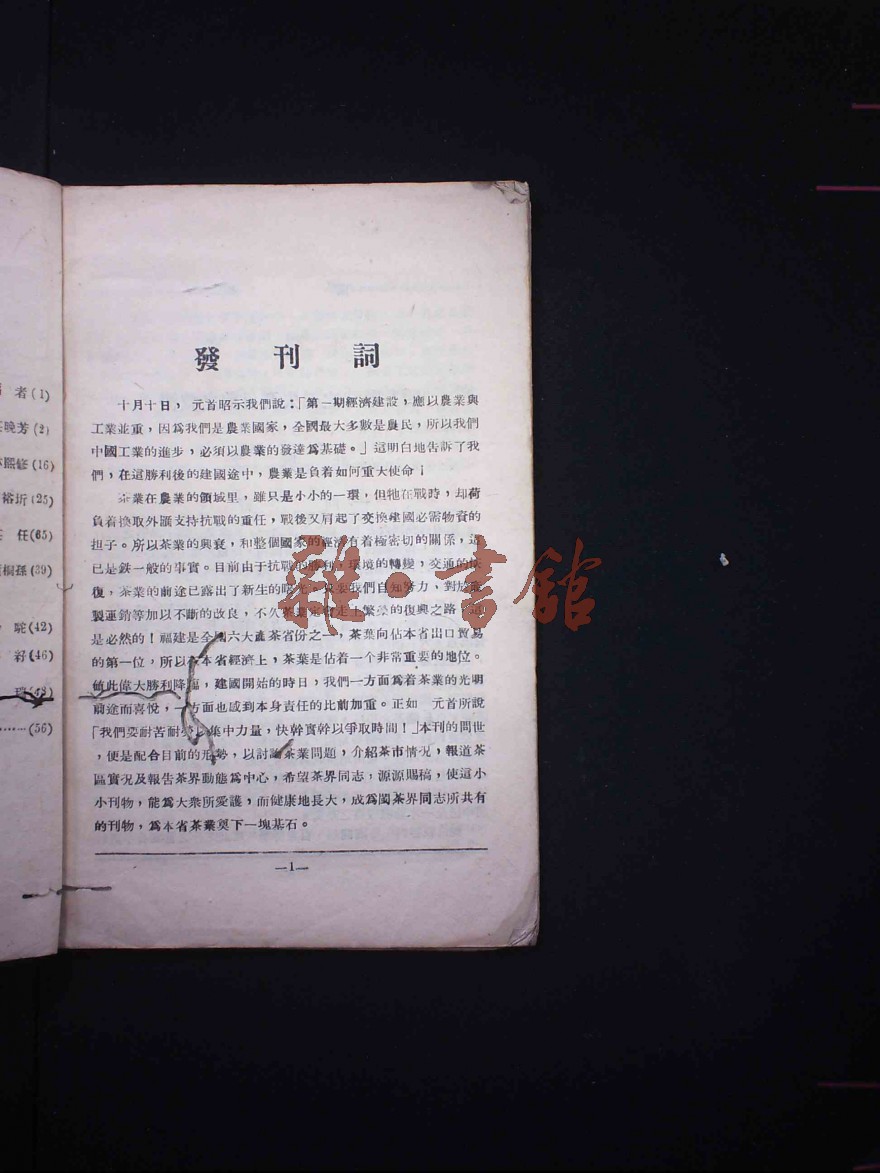 者(1)
晚芳(2)
熙修(16)
裕圻(25)
任(65)
桐孫(39)
駝(42)
(46)
(48)
……(56)
發刊詞
十月十日，元首昭示我們說：「第一期經濟建設，應以農業與
工業並重，因爲我們是農業國家，全國最大多數是農民，所以我們
中國工業的進步，必須以農業的發達爲基礎。」這明白地告訴了我
們，在這勝利後的建國途中，農業是負着如何重大使命！
茶業在農業的領域里，雖只是小小的一環，但牠在戰時，却荷
負着換取外匯支持抗戰的重任，戰後又肩起了交換建國必需物資的
担子。所以茶業的興衰，和整個國家的經濟有着極密切的關係，這
已是鉄一般的事實。目前由于抗戰的勝利，環境的轉變，交通的恢
復，茶業的前途已露出了新生的曙光。只要我們自知努力，對於產
製運銷等加以不斷的改良，不久茶業定會走上繁榮的復興之路，這
是必然的！福建是全國六大產茶省份之一，茶葉向佔本省出口貿易
的第一位，所以在本省經濟上，茶葉是佔着一个非常重要的地位。
値此偉大勝利降臨，建國開始的時日，我們一方面爲着茶業的光明
前途而喜悅，一方面也感到本身責任的比前加重。正如　元首所說
「我們要耐苦耐　集中力量，快幹實幹以爭取時間！」本刊的問世
，便是配合目前的形勢，以討論茶業問題，介紹茶市情况，報道茶
區實况及報告茶界動態爲中心，希望茶界同志，源源賜稿，使這小
小刊物，能爲大衆所愛護，而健康地長大，成爲閩茶界同志所共有
的刊物，爲本省茶業奠下一塊基石。
—1—
雜·書館